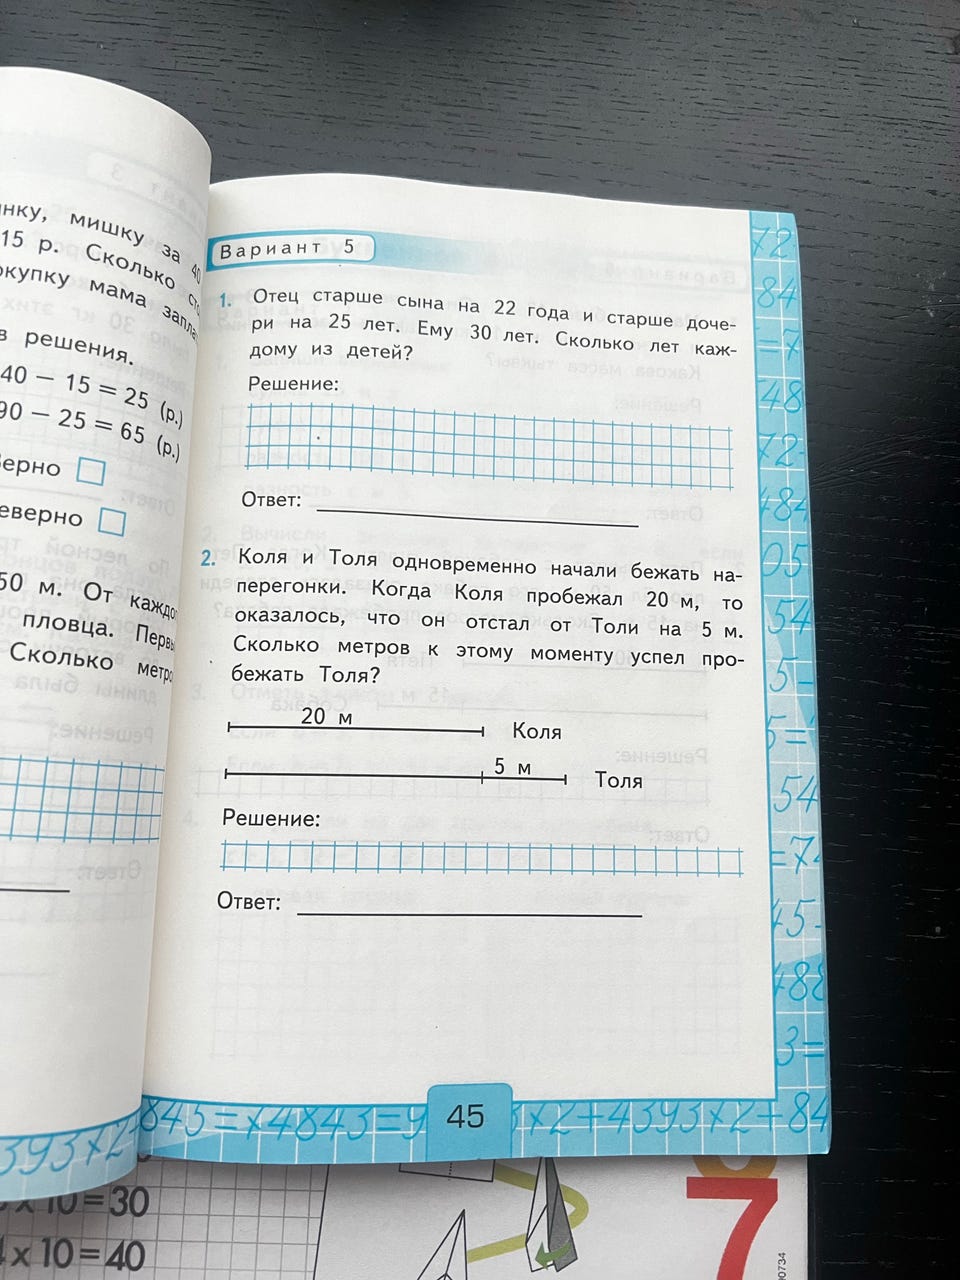 нку, мишку за 40
15 р. Сколько
окупку мама
решения.
40 − 15 = 25 (р.)
90 − 25 = 65 (р.)
верно
еверно
50 м. От
пловца.
Сколько
Вариант 5
1. Отец старше сына на 22 года и старше доче-
ри на 25 лет. Ему 30 лет. Сколько лет каж-
дому из детей?
Решение:
Ответ:
2. Коля и Толя одновременно начали бежать на-
перегонки. Когда Коля пробежал 20 м, то
оказалось, что он отстал от Толи на 5 м.
Сколько метров к этому моменту успел про-
бежать Толя?
20 м
Коля
5 м
Толя
Решение:
Ответ:
45
x 10 = 30
4 x 10 = 40
7